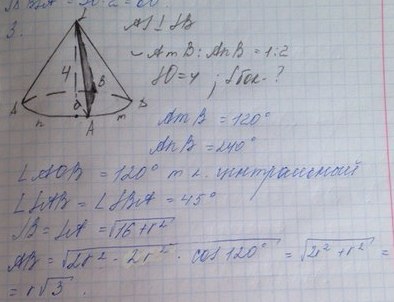 3.
AS ⊥ SB
◡ AmB : AnB = 1:2
SO = 4 ; S бок. - ?
4
B
A
B
O
n
A
m
AmB = 120°
AnB = 240°
∠AOB = 120° т.к. центральный
∠SAB = ∠SBA = 45°
SB = SA = √16 + r²
AB = √2r² - 2r² · cos 120° = √2r² + r² =
= r√3.